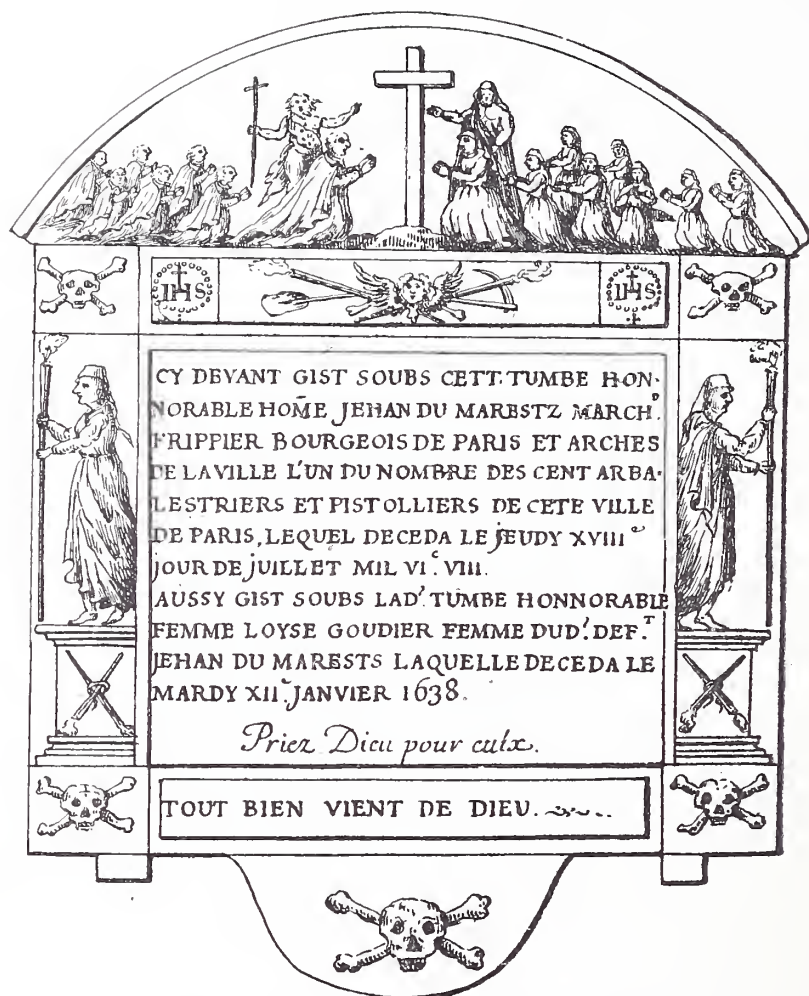 IHS IHS
CY DEVANT GIST SOUBS CETT. TUMBE HON-
NORABLE HOM̄E JEHAN DU MARESTZ MARCH.D
FRIPPIER BOURGEOIS DE PARIS ET ARCHES
DE LA VILLE L'UN DU NOMBRE DES CENT ARBA-
LESTRIERS ET PISTOLLIERS DE CETE VILLE
DE PARIS, LEQUEL DECEDA LE JEUDY XVIII e
JOUR DE JUILLET MIL VI.c VIII.
AUSSY GIST SOUBS LAD.t TUMBE HONNORABLE
FEMME LOYSE GOUDIER FEMME DUD.t DEF.T
JEHAN DU MARESTS LAQUELLE DECEDA LE
MARDY XII.e JANVIER 1638.
Priez Dieu pour eulx.
TOUT BIEN VIENT DE DIEU.